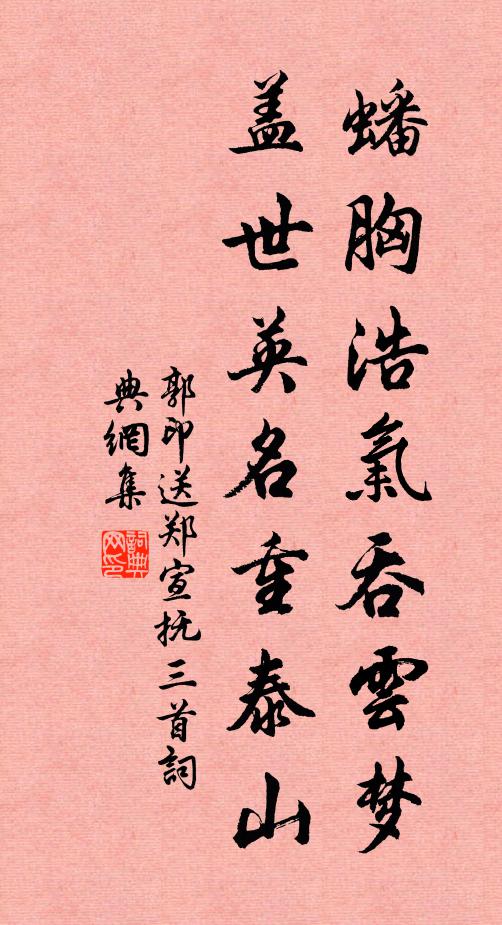 蟠胸浩氣吞雲梦
盖世英名重泰山
郭印送郑宣抚三首詞
典網集
詞典
网印